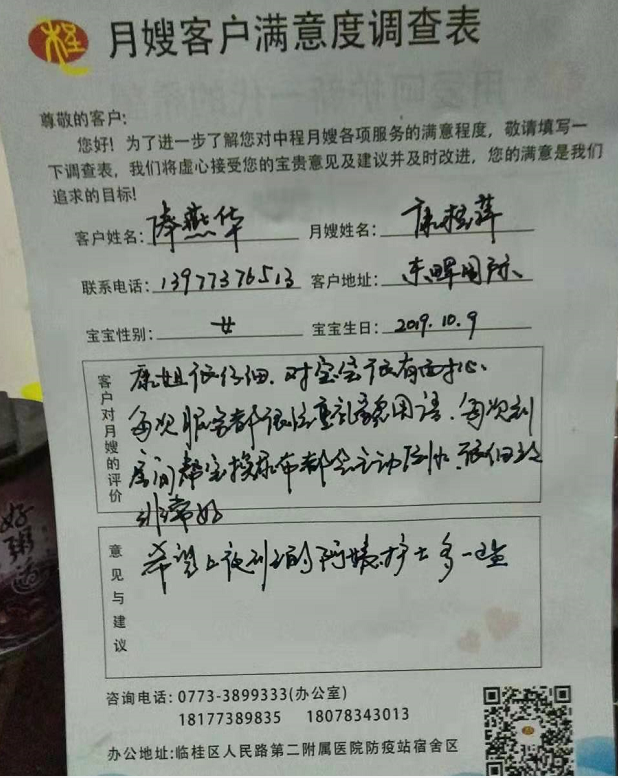 桂
月嫂客户满意度调查表
尊敬的客户:
您好！为了进一步了解您对中程月嫂各项服务的满意程度，敬请填写一
下调查表，我们将虚心接受您的宝贵意见及建议并及时改进，您的满意是我们
追求的目标!
客户姓名: 燕华 月嫂姓名: 康桂萍
联系电话: 13977376513 客户地址: 东晖国际
宝宝性别: 女 宝宝生日: 2019.10.9
客户对月嫂的评价
康姐很仔细，对宝宝很有耐心、
每次服务都很注重礼貌用语，每次到
房间帮宝换尿布都会主动 很细致
非常好
意见与建议
希望上夜班的阿姨护士多一些
咨询电话: 0773-3899333(办公室)
18177389835 18078343013
办公地址: 临桂区人民路第二附属医院防疫站宿舍区
好粥道